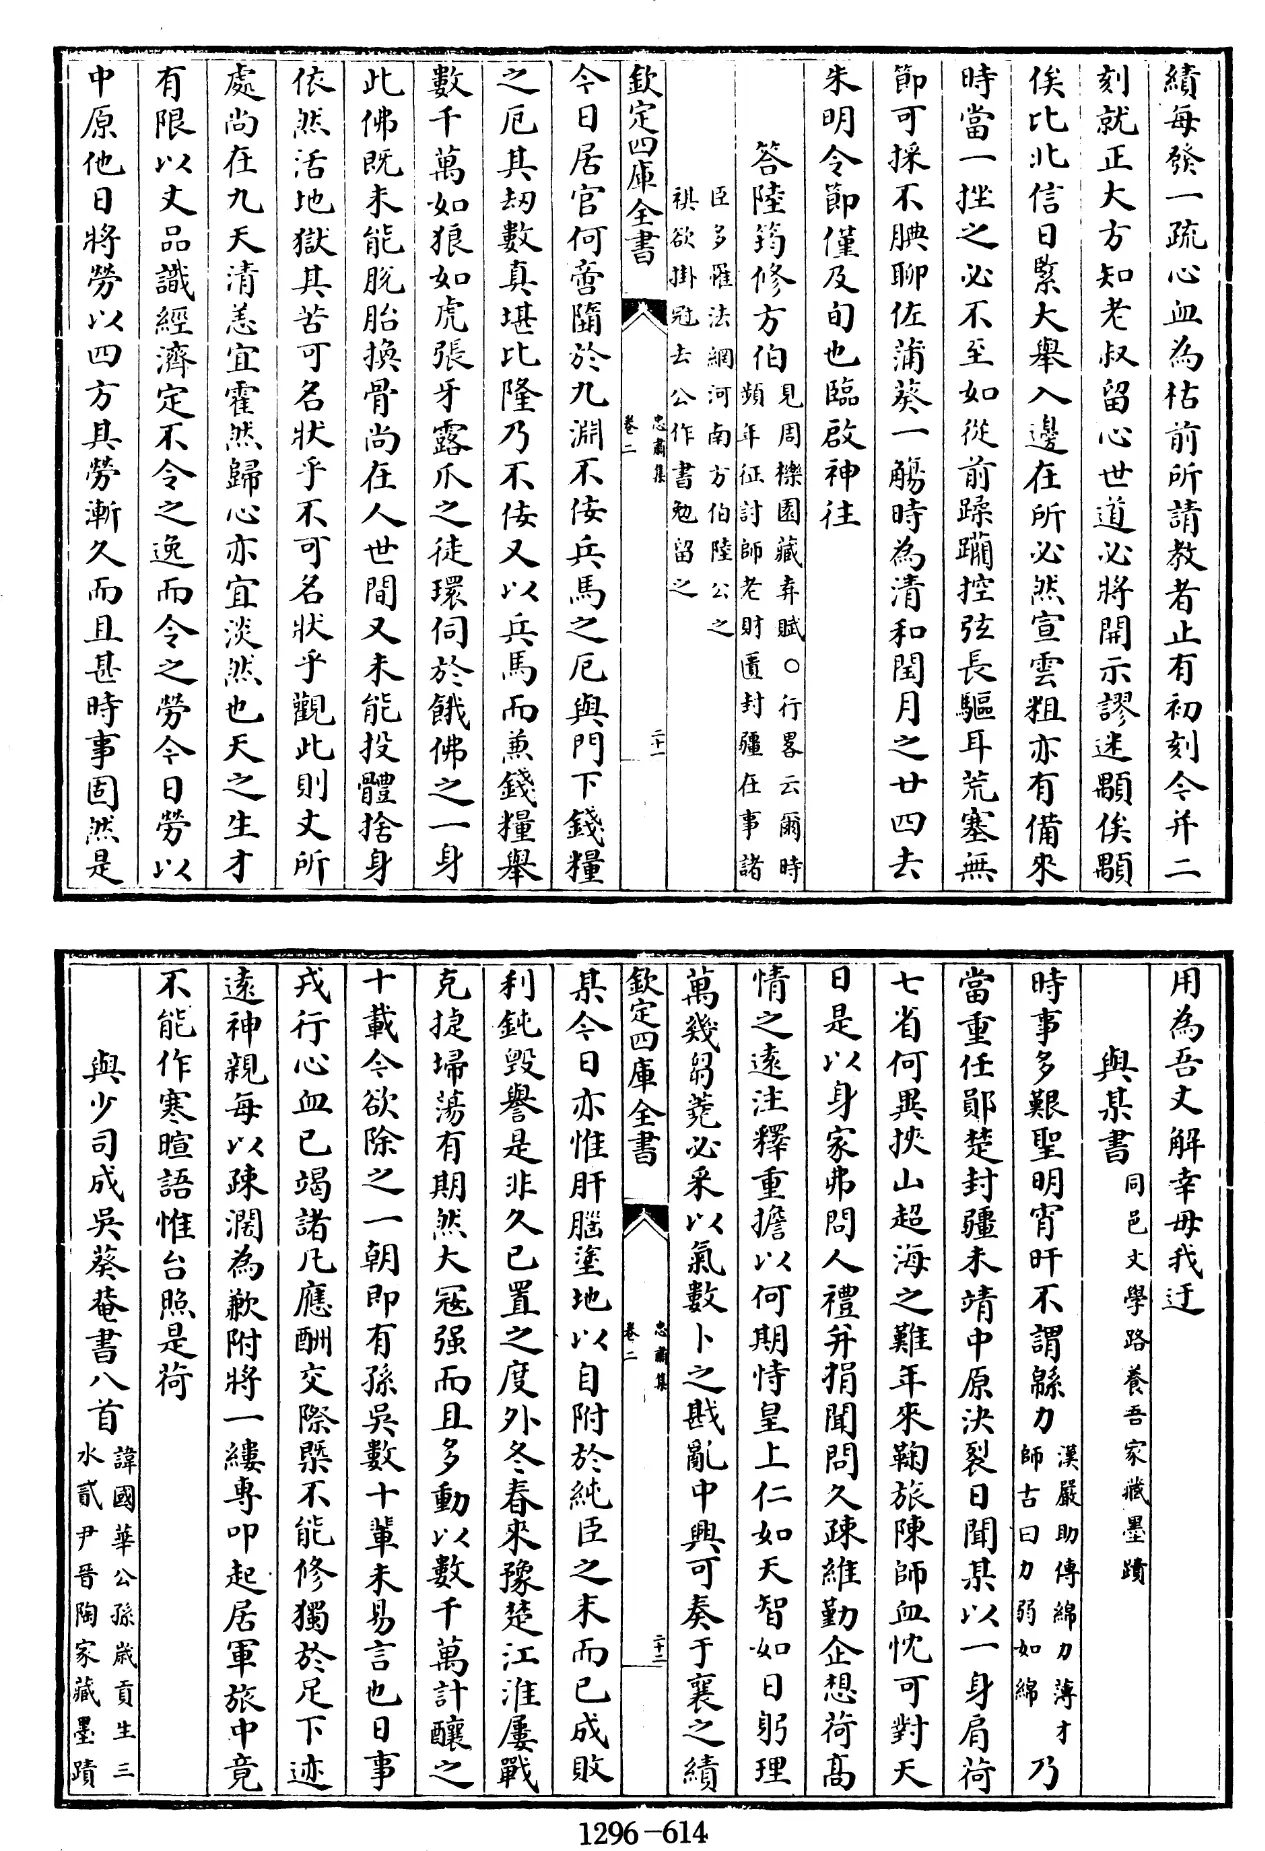 績每發一疏心血為枯前所請教者止有初刻今并二
刻就正大方知老叔留心世道必將開示謬迷顒俟顒
俟比北信日緊大舉入邊在所必然宣雲粗亦有備來
時當一挫之必不至如從前蹂躪控弦長驅耳荒塞無
節可採不腆聊佐蒲葵一觴時為清和閏月之廿四去
朱明令節僅及旬也臨啟神往
答陸筠修方伯
見周櫟園藏弆賦○行畧云爾時
頻年征討師老財匱封疆在事諸
臣多罹法網河南方伯陸公之
祺欲掛冠去公作書勉留之
欽定四庫全書
忠肅集
卷二
二十一
今日居官何啻隨於九淵不佞兵馬之厄與門下錢糧
之厄其刼數真堪比隆乃不佞又以兵馬而兼錢糧舉
數千萬如狼如虎張牙露爪之徒環伺於餓佛之一身
此佛既未能脫胎換骨尚在人世間又未能投體捨身
依然活地獄其苦可名狀乎不可名狀乎觀此則丈所
處尚在九天清恙宜霍然歸心亦宜淡然也天之生才
有限以丈品識經濟定不令之逸而令之勞今日勞以
中原他日將勞以四方其勞漸久而且甚時事固然是
用為吾丈解幸毋我迂
與某書
同邑文學路養吾家藏墨蹟
時事多艱聖明宵旰不謂緜力
漢嚴助傳綿力薄才
師古曰力弱如綿
乃
當重任鄖楚封疆未靖中原決裂日聞某以一身肩荷
七省何異挾山超海之難年來鞠旅陳師血忱可對天
日是以身家弗問人禮并捐聞問久疎維勤企想荷髙
情之遠注釋重擔以何期恃皇上仁如天智如日躬理
萬幾芻蕘必采以氣數卜之戡亂中興可奏于襄之績
欽定四庫全書
忠肅集
卷二
二十二
某今日亦惟肝腦塗地以自附於純臣之末而已成敗
利鈍毀譽是非久已置之度外冬春來豫楚江淮屢戰
克捷埽蕩有期然大寇强而且多動以數千萬計釀之
十載今欲除之一朝即有孫吳數十輩未易言也日事
戎行心血已竭諸凡應酬交際槩不能修獨於足下迹
遠神親每以疎濶為歉附將一縷專叩起居軍旅中竟
不能作寒暄語惟台照是荷
與少司成吳葵菴書八首
諱國華公孫歲貢生三
水貳尹晉陶家藏墨蹟
1296-614